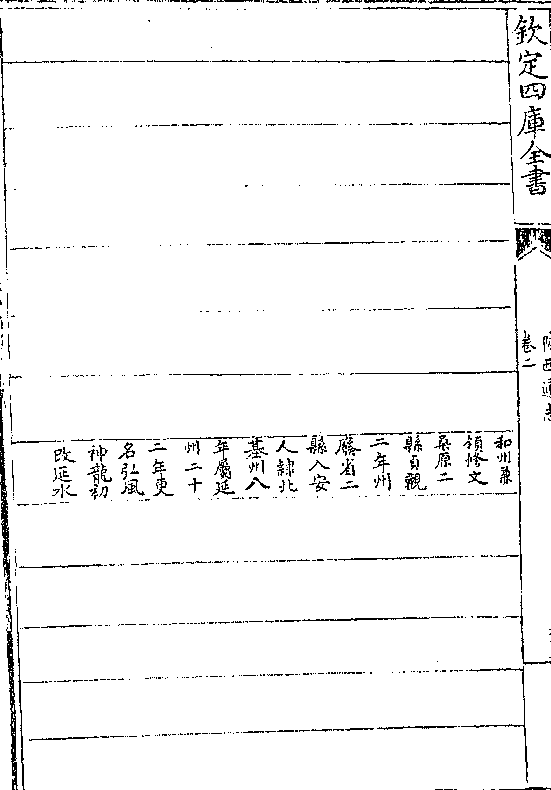 欽定四庫全書
陝西通志
卷二
和州兼
領修文
桑原二
縣貞觀
二年州
廢省二
縣入安
人隷北
基州八
年屬延
州二十
二年更
名弘風
神龍初
改延水